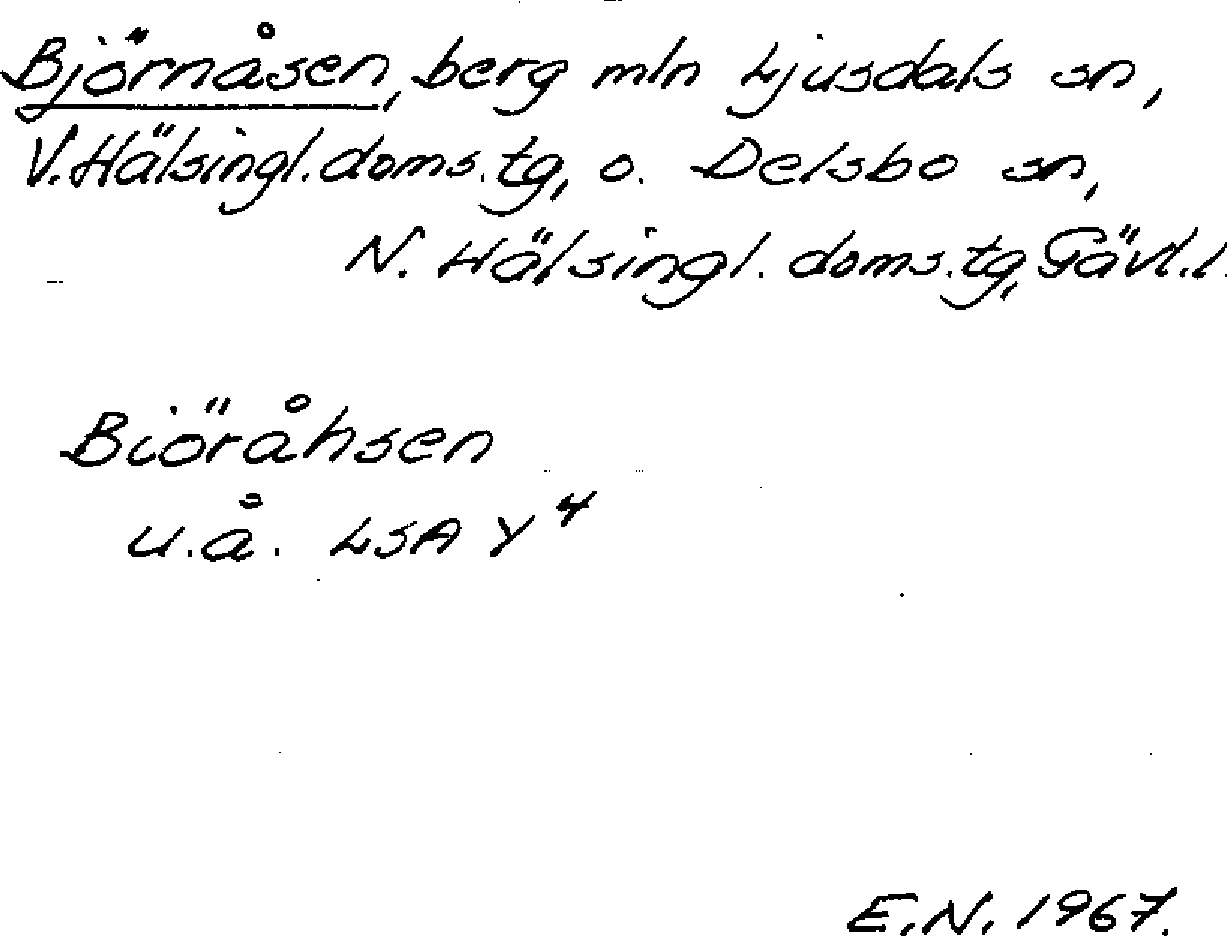 Björnåsen, berg mln Ljusdals sn,
V. Hälsingl. doms. tg, o. Delsbo sn,
N. Hälsingl. doms. tg, Gävl. l.
Biöråhsen
u.å. LSA Y⁴
E.N. 1967.